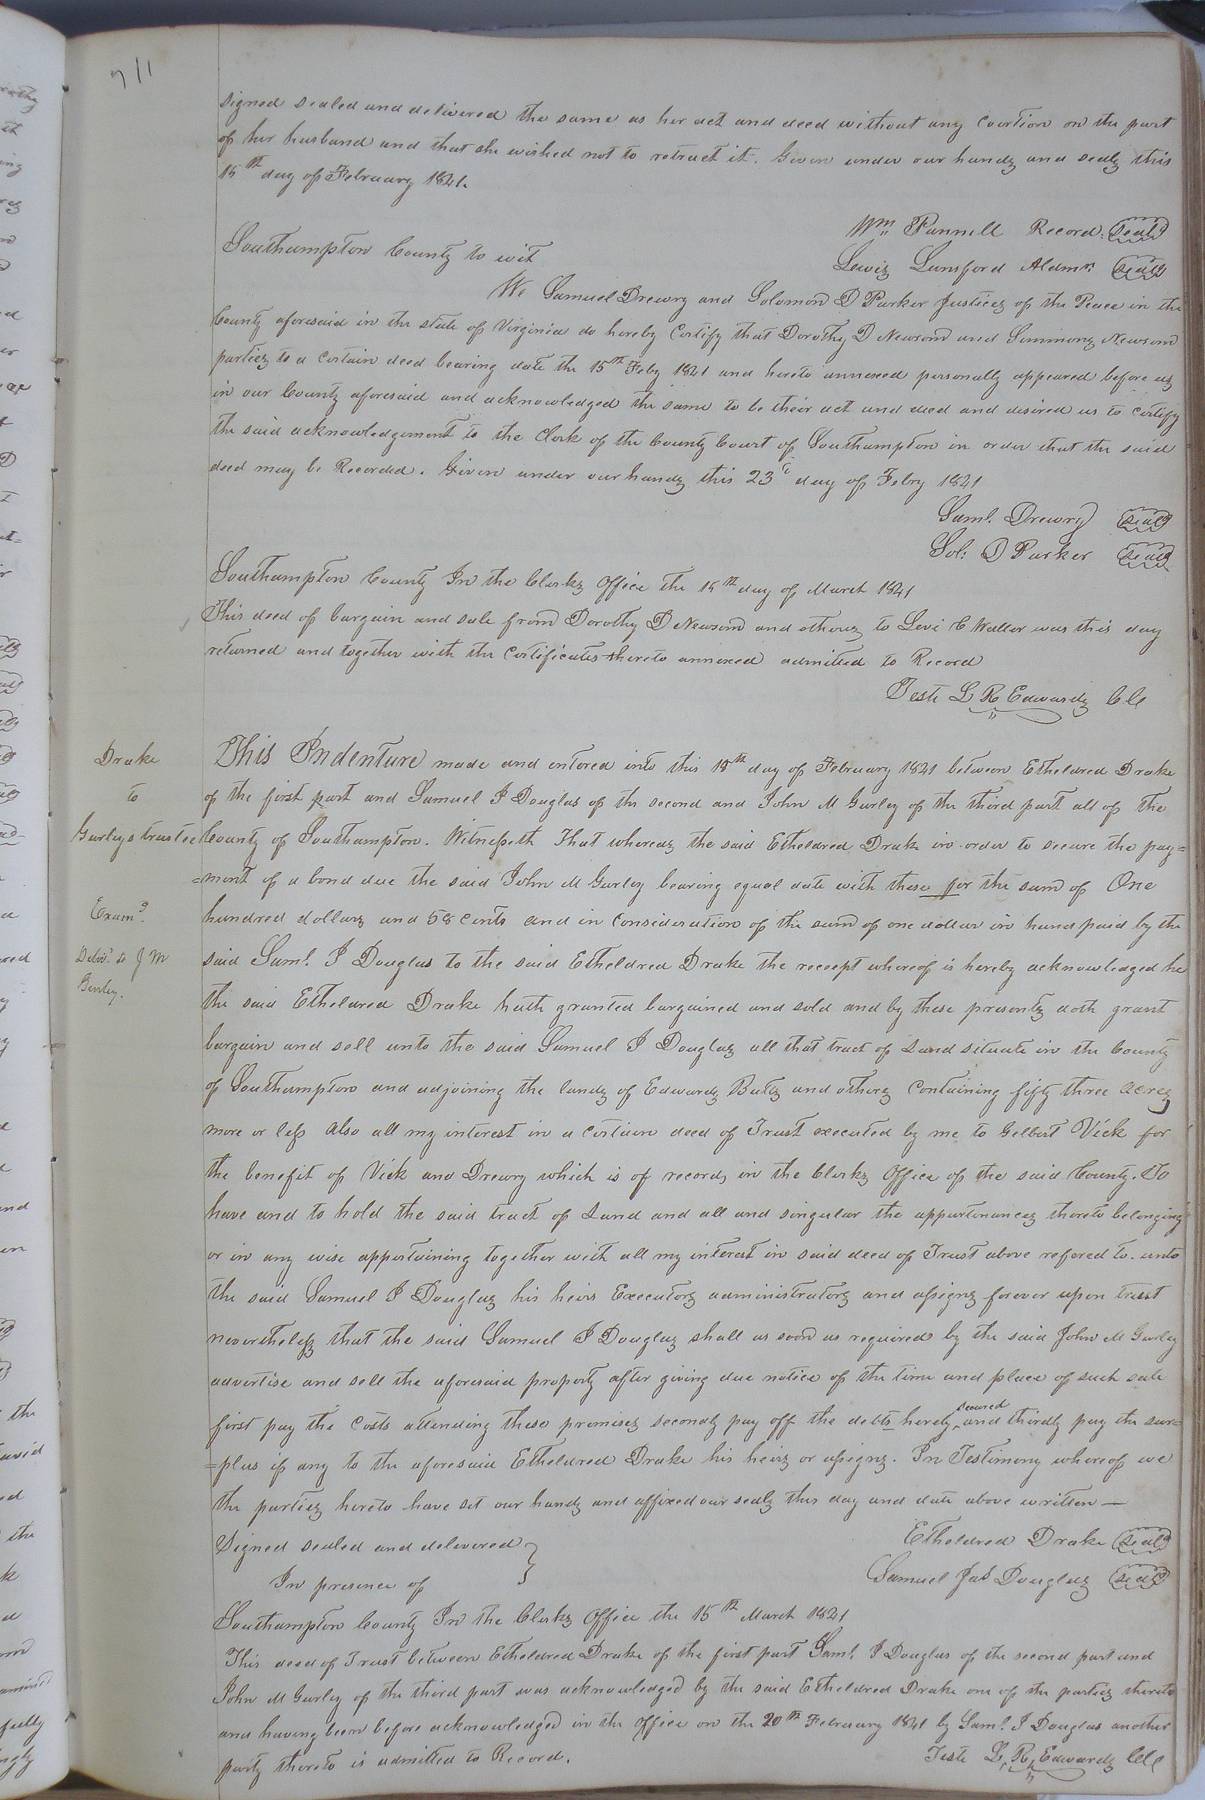 711
signed sealed and delivered the same as her act and deed without any coertion on the part
of her husband and that she wished not to retract it. Given under our hands and seals this
15th day of February 1821.
Wm Pannill Record. Seal
Southampton County to wit
Lewis Lunsford Aldmn Seal
We Samuel Drewry and Solomon D Parker Justices of the Peace in the
County aforesaid in the state of Virginia do hereby Certify that Dorothy D Newsom and Simmons Newsom
parties to a certain deed bearing date the 15th Feby 1821 and hereto annexed personally appeared before us
in our County aforesaid and acknowledged the same to be their act and deed and desired us to certify
the said acknowledgement to the Clerk of the County Court of Southampton in order that the said
deed may be Recorded. Given under our hands this 23d day of Febry 1821
Saml. Drewry Seal
Sol: D Parker Seal
Southampton County In the Clerks Office the 15th day of March 1821
This deed of bargain and sale from Dorothy D Newsom and others to Levi C Waller was this day
returned and together with the Certificates thereto annexed admitted to Record
Teste L R Edwards CC
Drake
to
Gurleys trustee
Examd.
Delivd. to J M
Gurley.
This Indenture made and entered into this 18th day of February 1821 between Etheldred Drake
of the first part and Samuel J Douglas of the second and John M Gurley of the third part all of the
County of Southampton. Witnesseth That whereas the said Etheldred Drake in order to secure the pay=
=ment of a bond due the said John M Gurley bearing equal date with these for the sum of One
hundred dollars and 58 Cents and in consideration of the sum of one dollar in hand paid by the
said Saml. J Douglas to the said Etheldred Drake the receept whereof is hereby acknowledged he
the said Etheldred Drake hath granted bargained and sold and by these presents doth grant
bargain and sell unto the said Samuel J Douglas all that tract of Land situate in the County
of Southampton and adjoining the lands of Edwards Butts and others Containing fifty three acres
more or less also all my interest in a certain deed of Trust executed by me to Gelbert Vick for
the benefit of Vick and Drewry which is of record, in the Clerks Office of the said County. To
have and to hold the said tract of Land and all and singular the appurtinances thereto belonging
or in any wise appertaining together with all my interest in said deed of Trust above refered to. unto
the said Samuel J Douglas his heirs Executors administrators and assigns forever upon trust
nevertheless that the said Samuel J Douglas shall as soon as required by the said John M Gurley
advertise and sell the aforesaid property after giving due notice of the time and place of such sale
first pay the Costs attending these premises secondly pay off the debts hereby secured and thirdly pay the sur=
=plus if any to the aforesaid Etheldred Drake his heirs or assigns. In Testimony whereof we
the parties hereto have set our hands and affixed our seals this day and date above written —
Signed sealed and delivered
Etheldred Drake Seal
In presence of
Samuel Jas Douglas Seal
Southampton County In the Clerks Office the 15th March 1821
This deed of Trust between Etheldred Drake of the first part Saml. J Douglas of the second part and
John M Gurley of the third part was acknowledged by the said Etheldred Drake one of the parties thereto
and having been before acknowledged in the office on the 20th February 1821 by Saml. J Douglas another
party thereto is admitted to Record.
Teste L R Edwards CC